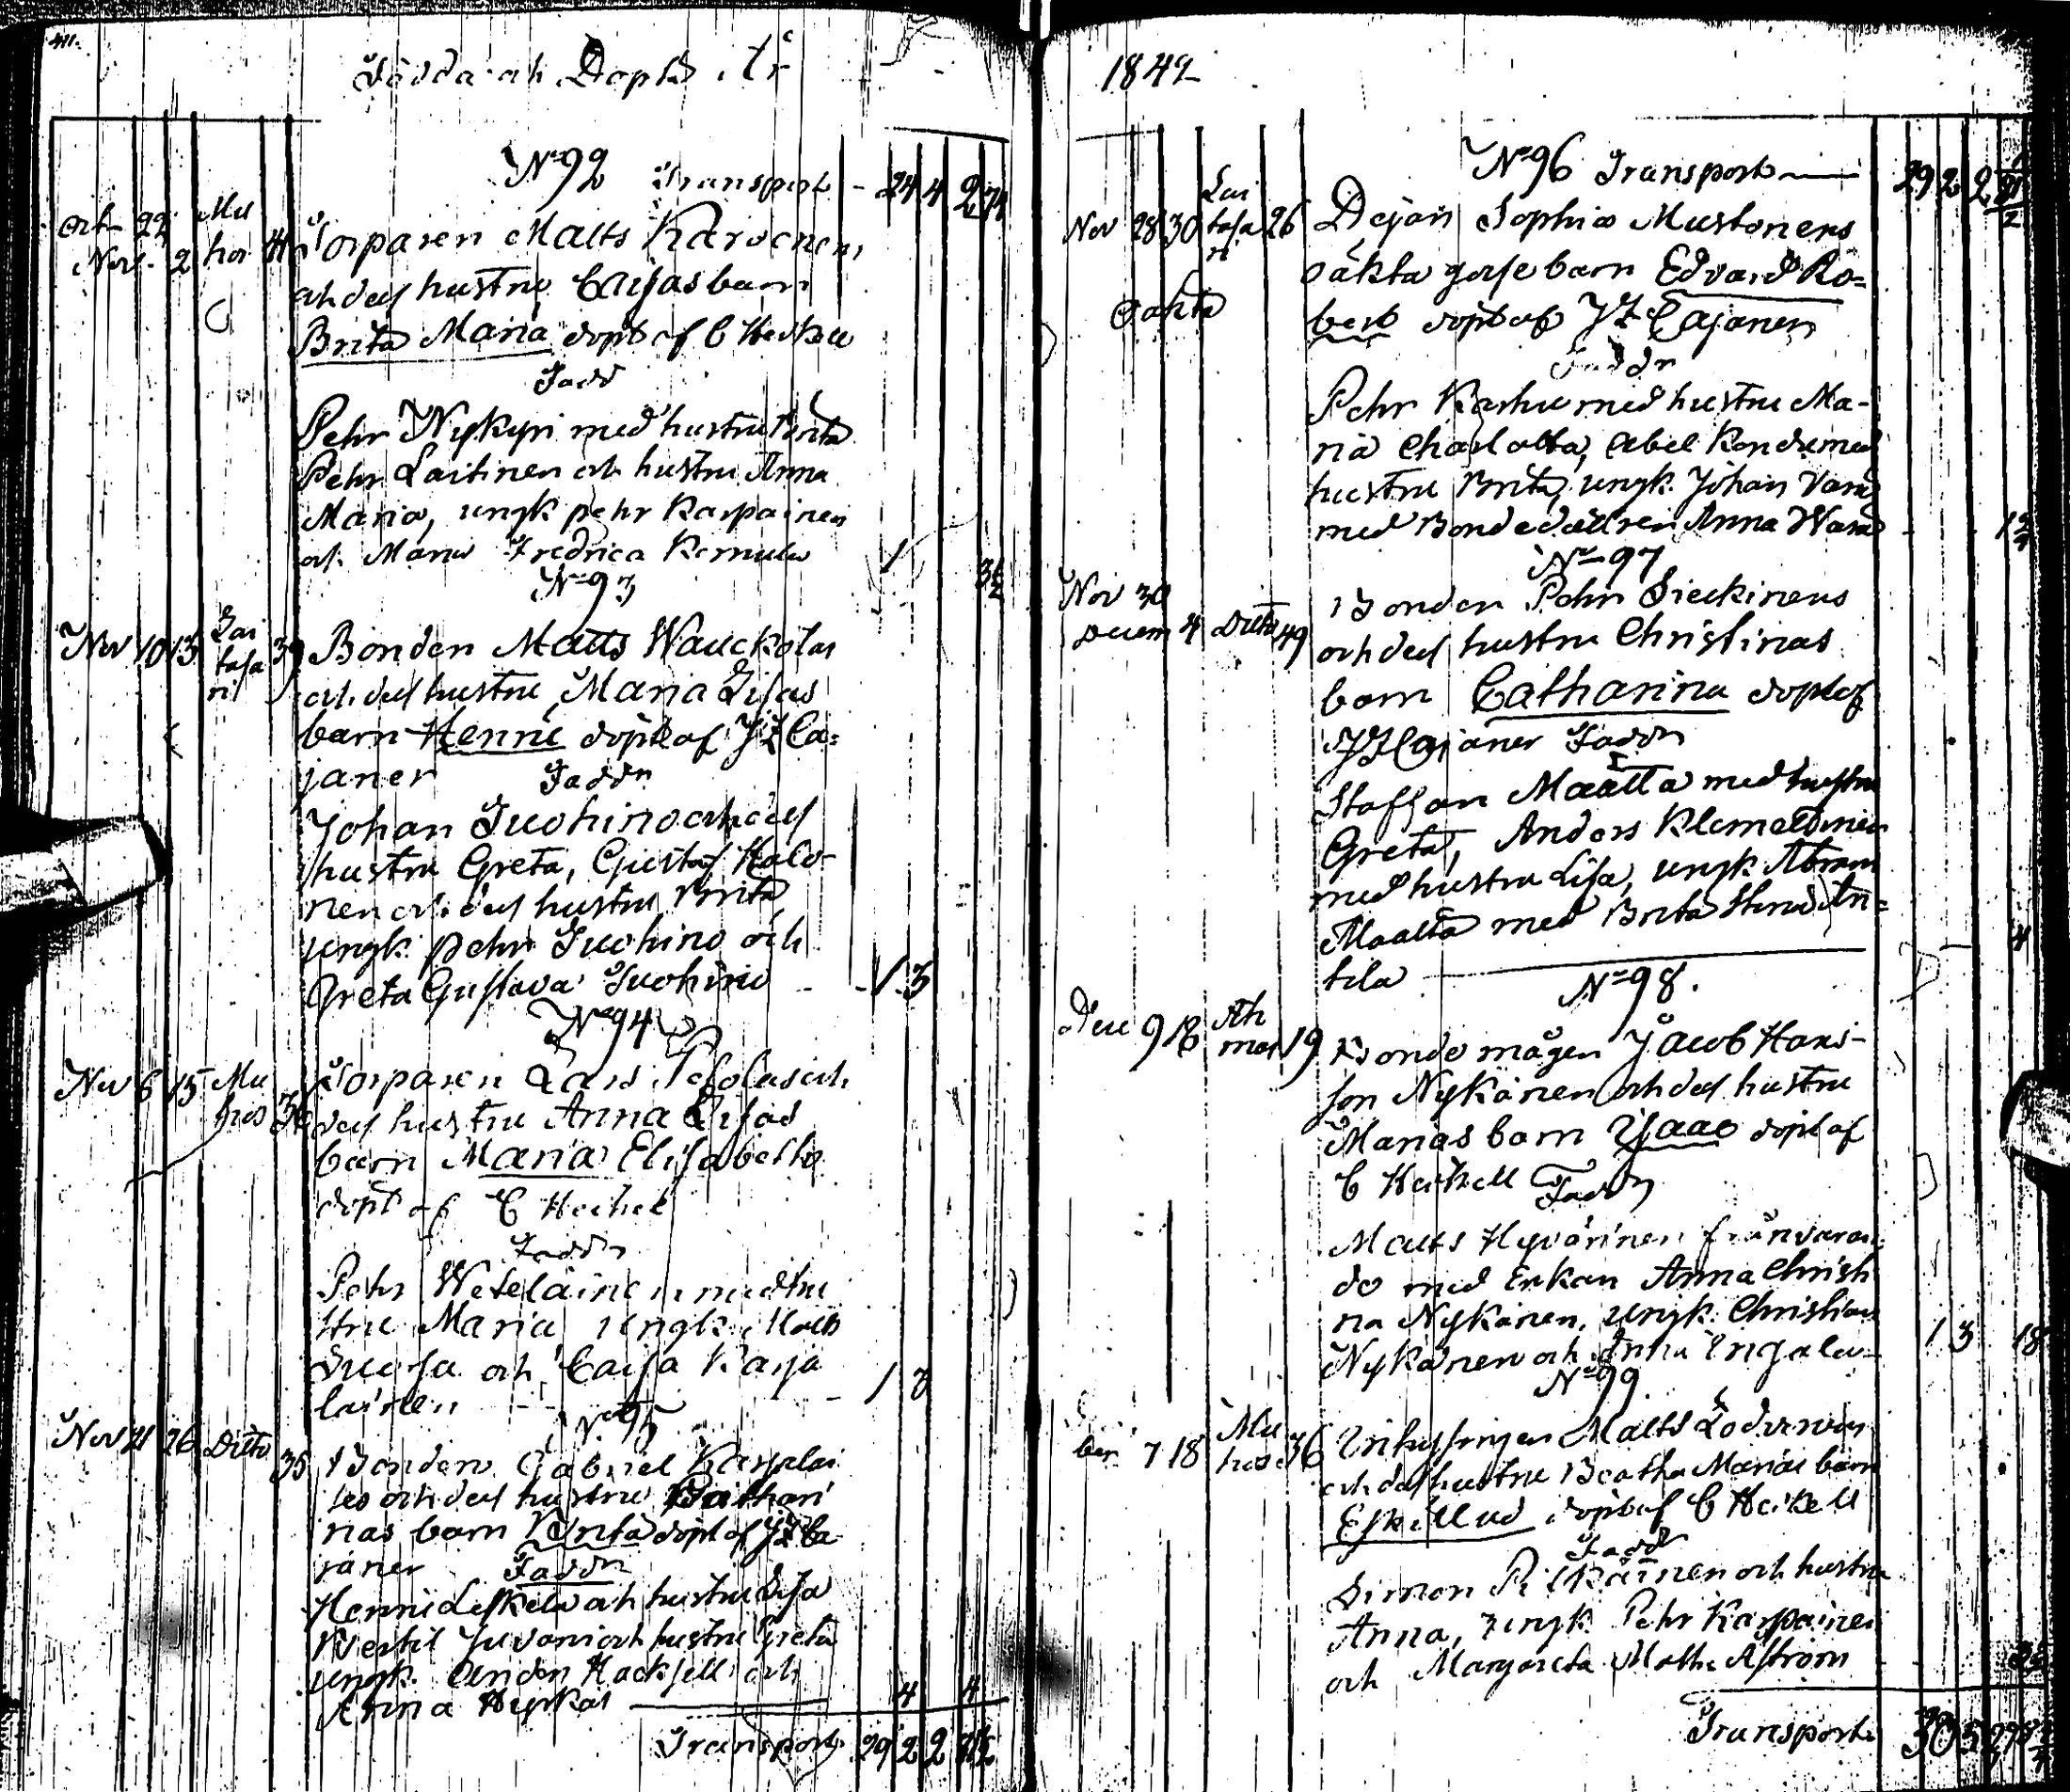 411.
Födda och Döpta År
N=92 Transport - 24 4 2 7¼
Oct 22 Mu
Nov. 2 hos 41 Torparen Matts Karvonens
och dess hustru Caisas barn
Brita Maria döpt af C Heikell
Fadd
Pehr Nykyri med hustru Brita
Pehr Laitinen och hustru Anna
Maria, ungk pehr Karpainen
och Maria Fredrica Kemula 1 3½
N=93
Nov 10 13 Lai tasa ri 39 Bonden Matts Wauckolas
och dess hustru Maria Lisas
barn Henric döpt af JF Ca=
janer Faddr
Johan Suohino och dess
hustru Greta, Gustaf Halo-
nen och dess hustru Brita
ungk. pehr Suohino och
Greta Gustava Suohino - 1 3
N=94
Nov 6 15 Mu hos 36 Torparen Lars och
dess hustru Anna Lisas
barn Maria Elisabetha
döpt af C Heikel
Faddr
Pehr Weteläinen med hu
stru Maria ungk. Matts
Suursa och Caisa Karja
lainen 1 3
N=95
Nov 21 26 Ditto 35 Bonden Gabriel Karjalai
ses och dess hustru Cathari
nas barn Brita döpt af JF Ca
janer Faddr
Henric Leskelä och hustru Lisa
Bertil Juvani och hustru Greta
ungk. Anders Hacksell och
Anna Hyrkäs 4 4
Transport 29 2 2 31½
1849
N=96 Transport 29 2 2 31½
Nov 28 30 Lai tasa ri 26 Dejan Sophia Mustonens
oäkta gosse barn Edvard Ro=
Oäkta
bert döpt af JF Cajaner
Faddr
Pehr Karhu med hustru Ma-
ria Charlotta, Abel Kondu med
hustru Brita, ungk. Johan Vara
med Bondedottren Anna Wara
N=97
Nov 30
Decem 4 Ditto 49 Bonden Pehr Sieckinens
och dess hustru Christinas
barn Catharina döpt af
JF Cajaner Faddr
Staffan Määttä med hustru
Greta, Anders Klemettinen
med hustru Lisa, ungk. Abram
Määttä med Brita Stina An=
tila 4
N=98.
Dec 9 18 19 Bonde mågen Jacob Hans-
son Nykänen och dess hustru
Marias barn Isaac döpt af
C Heikell Faddr
Matts Hyvärinen frånvaran-
de med Enkan Anna Christi
na Nykänen, ungk. Christian
Nykänen och Anna Ingala 1 3 18
N=99.
ber 7 18 Mu hos 36 Matts
och dess hustru Beatha Marias barn
döpt af C Heikell
Fadd
Simon Pitkänen och hustru
Anna, ungk. Pehr Karpainen
och Margareta Math. Åström
Transport 30 5